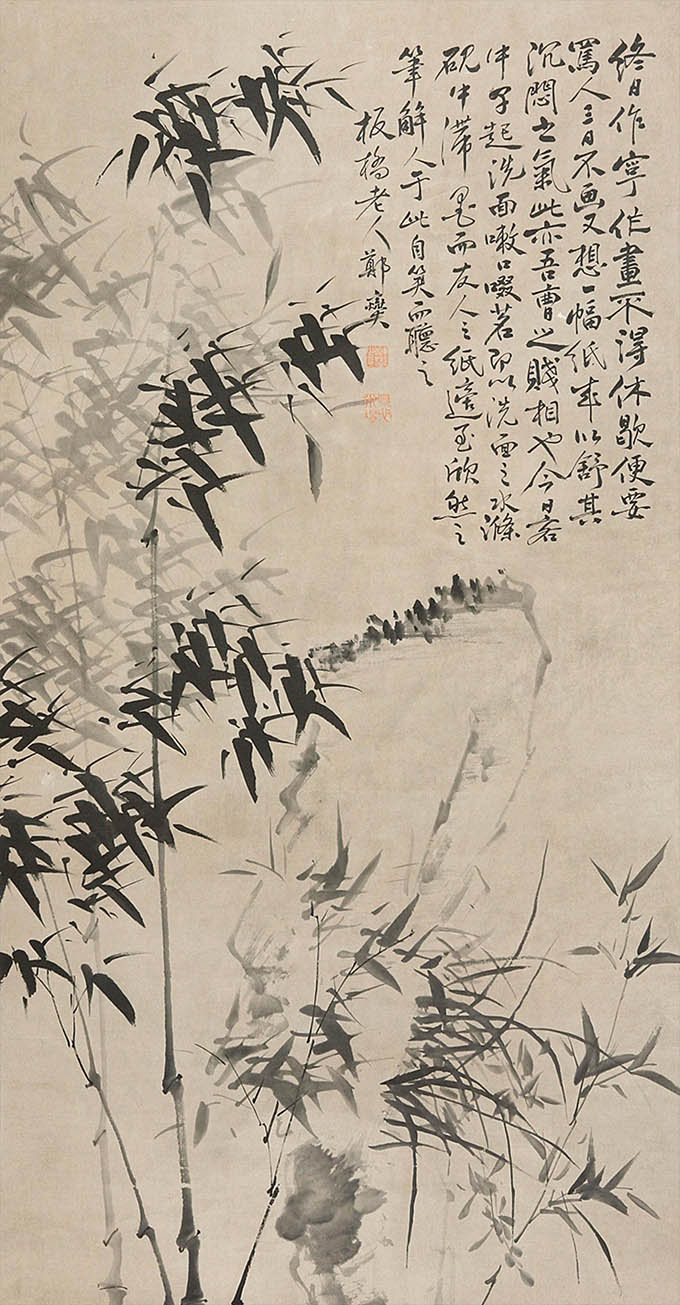 終日作字作畫不得休歇便要
罵人三日不画又想一幅紙來以舒其
沉悶之氣此亦吾曹之賤相也今日客
中早起洗面嗽口啜茗即以洗面之水滌
硯中滯墨而友人之紙適至欣然之
筆解人于此自笑而聽之
板橋老人鄭燮